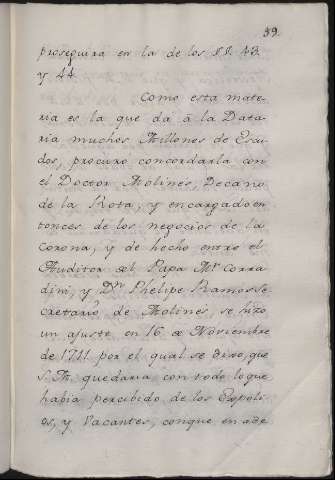 39.
proseguirà en la de los §§. 43.
y 44.
Como esta mate-
ria es la que dà à la Data-
ria muchos Millones de Escu-
dos, procurò concordarla con
el Doctor Molines, Decano
de la Rota, y encargado en-
tonces de los negocios de la
Corona, y de hecho entre el
Auditor del Papa Mr. Corra-
dini, y Dn. Phelipe Ramos Se-
cretario de Molines, se hizo
un ajuste en 16 de Noviembre
de 1711 por el qual se dixo, que
S. M. quedaria con todo lo que
havia percibido de los Expoli-
os, y Vacantes, conque en ade